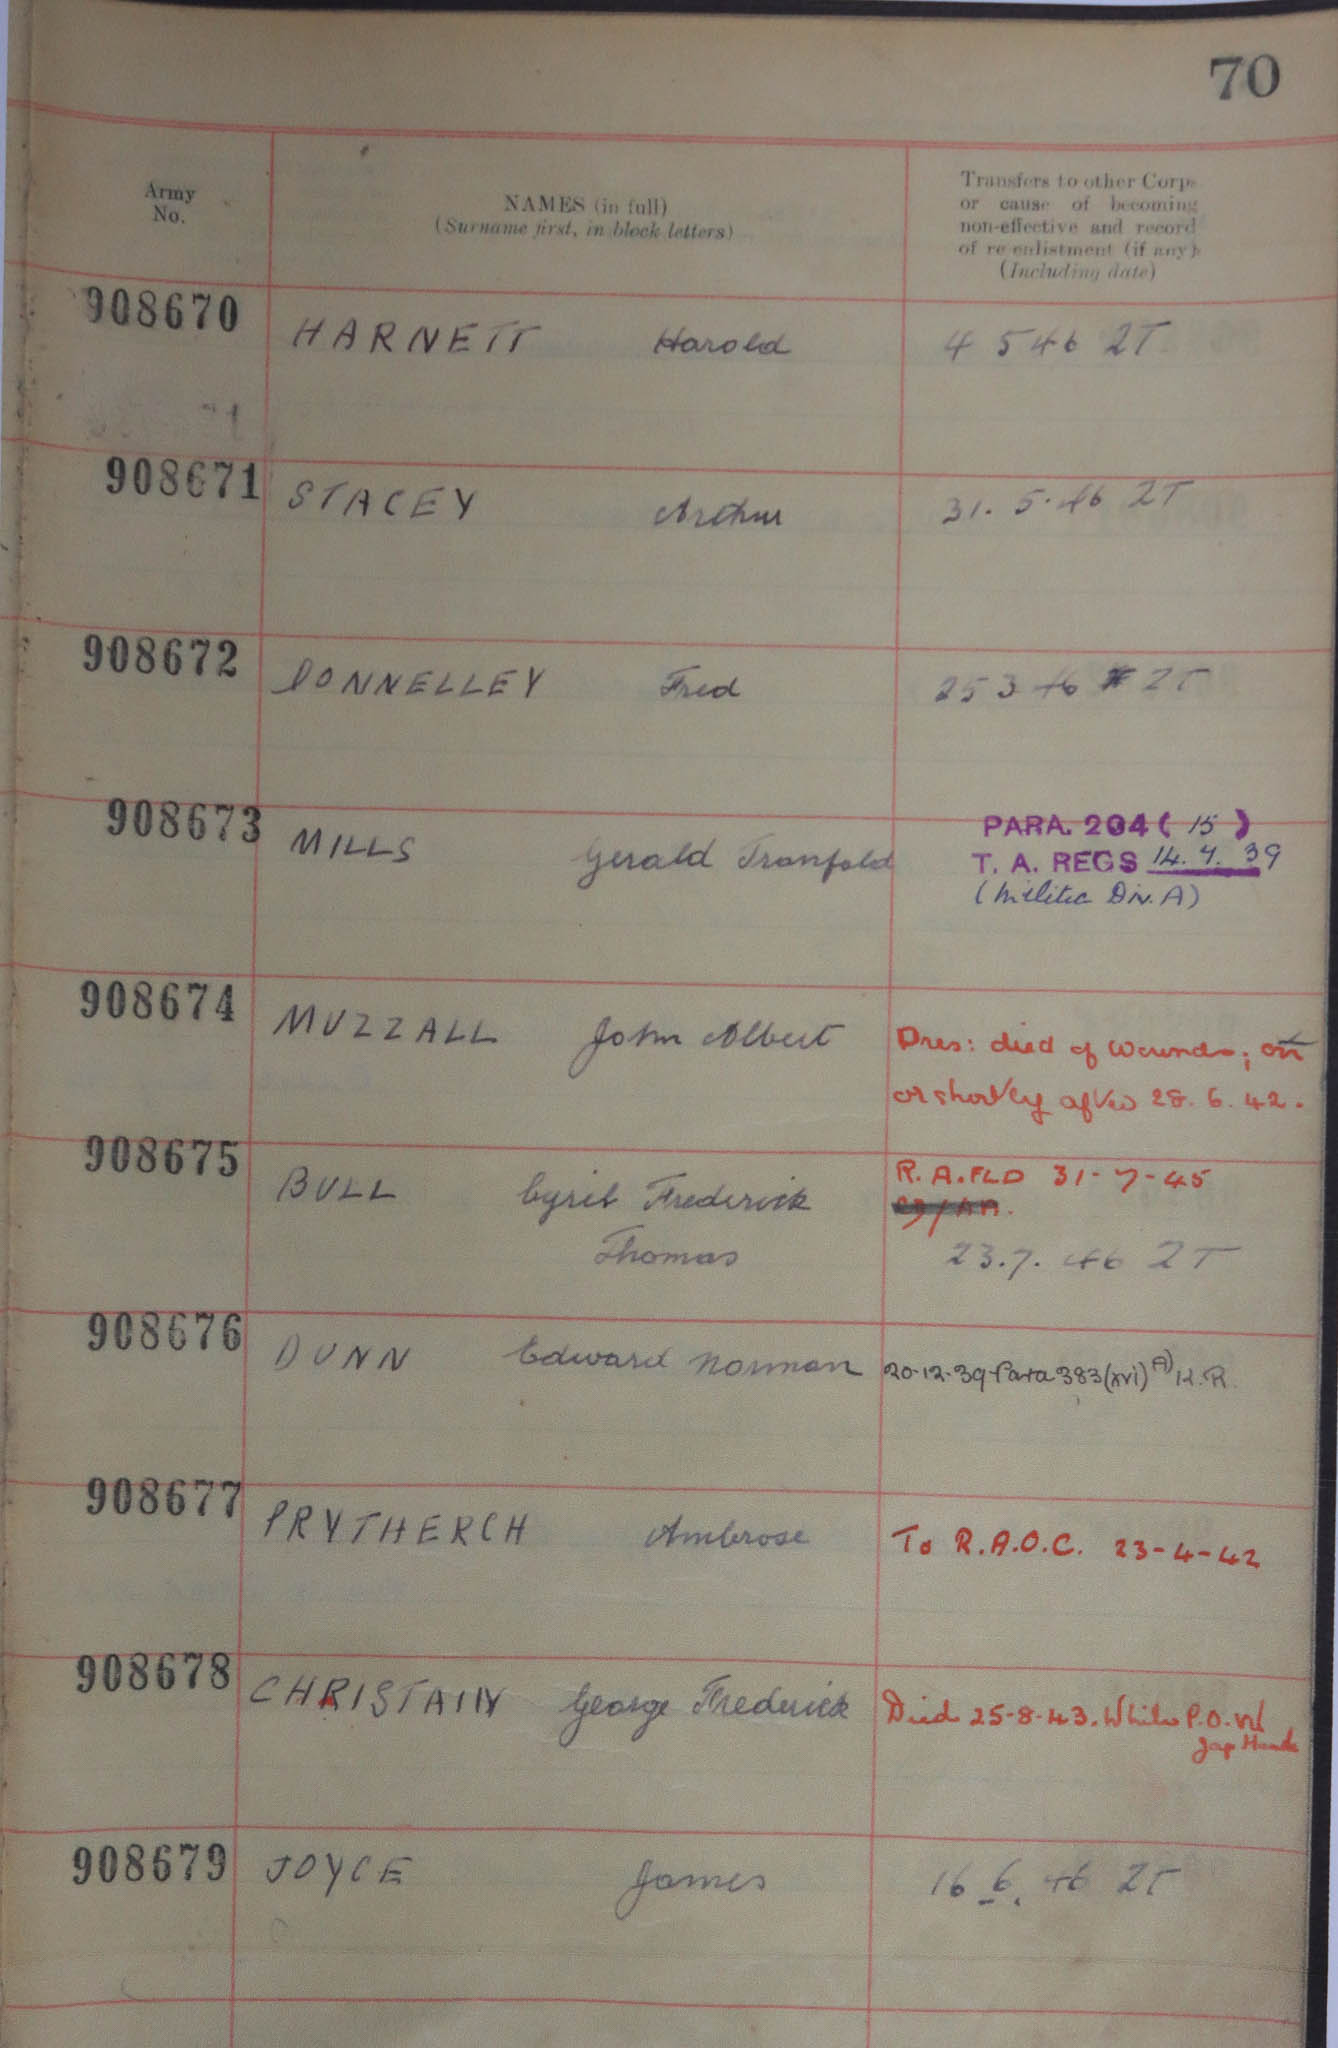 70
Army
No.
NAMES (in full)
(Surname first, in block letters)
Transfers to other Corps
or cause of becoming
non-effective and record
of re-enlistment (if any)
(Including date)
908670 HARNETT Harold 4 5 46 ZT
908671 STACEY Arthur 31. 5. 46 ZT
908672 DONNELLEY Fred 25 3 46 ZT
908673 MILLS Gerald Tranfold
PARA. 204 ( 15 )
T. A. REGS 14. 7. 39
(Militia Div. A)
908674 MUZZALL John Albert Pres: died of wounds; on
or shortly after 28. 6. 42.
908675 BULL Cyril Frederick R. A. FLD 31-7-45
Thomas 23. 7. 46 ZT
908676 DUNN Edward Norman 20-12-39 Para 383 (xvi) A) K.R.
908677 PRYTHERCH Ambrose To R.A.O.C. 23-4-42
908678 CHRISTAIN George Frederick Died 25-8-43. While P.O.W
Jap Hands
908679 JOYCE James 16 6. 46 ZT